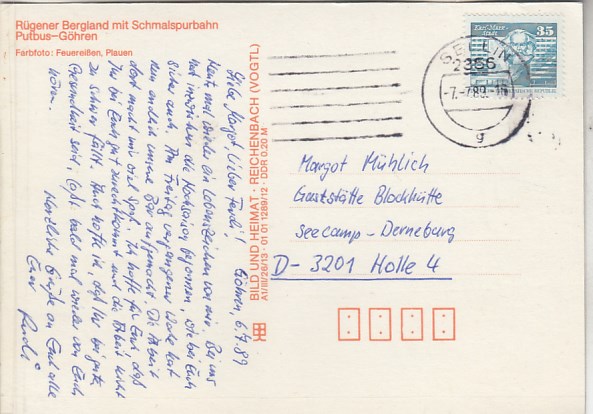 Rügener Bergland mit Schmalspurbahn
Putbus-Göhren
Farbfoto: Feuereißen, Plauen
Göhren, 6/7.89
Liebe Margot, lieber
Heute mal wieder ein Lebenszeichen von mir. Bei uns
hat inzwischen die Hochsaison begonnen, wie bei Euch
sicher auch. Am Freitag vergangene Woche hat
nun endlich unsere Bar aufgemacht. Die Arbeit
dort macht mir viel Spaß. Ich hoffe für Euch, daß
Ihr bei Euch gut zurechtkommt und die Arbeit nicht
zu schwer fällt. Auch hoffe ich, daß Ihr bei guter
Gesundheit seid, laßt bald mal wieder von Euch
hören.
Herzliche Grüße an Euch alle
Euer
BILD UND HEIMAT · REICHENBACH (VOGTL)
A1/III/26/13 · 01 01 1269/12 · DDR 0,20 M
Karl-Marx-
Stadt
35
2356
-7.-7.89.
g
Margot Mühlich
Gaststätte Blockhütte
Seecamp-Derneburg
D-3201 Holle 4